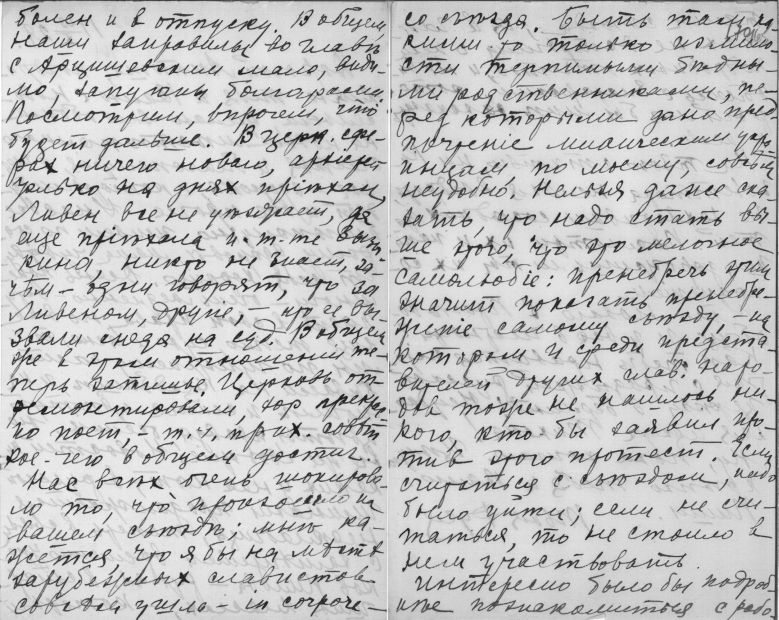 болен и в отпуску. В общем,
наши заправилы во главѣ
с Арцишевским мало, види-
мо, запуганы болгарами.
Посмотрим, впрочем, что
будет дальше. В церк. сфе-
рах ничего новаго, архіепп
только на днях пріѣхал,
Ливен все не уѣзжает, да
еще пріѣхала и m-me
кина, никто не знает, за-
чѣм – одни говорят, что за
Ливеном, другіе, – что ее вы-
звали сюда на суд. В общем
же в этом отношении те-
перь затишье. Церковь от-
ремонтировали, хор прекрас-
но поет, – т. ч. прих. совѣт
кое-чего в общем достиг.
Нас всѣх очень шокирова-
ло то, что произошло на
вашем съѣздѣ; мнѣ ка-
жется, что я бы на мѣстѣ
зарубежных славистов
совсѣм ушла – in corpore –
со съѣзда. Быть там ка-
кими-то только из мило-
сти терпимыми бѣдны-
ми родственниками, пе-
ред которыми дано пред-
почтеніе мифическим укра-
инцам, по моему, совсѣм
неудобно. Нельзя даже ска-
зать, что надо стать вы-
ше этого, что это мелочное
самолюбіе: пренебречь этим
значит показать пренебре-
жение самому съѣзду, – на
котором и среди предста-
вителей других слав. наро-
дов тоже не нашлось ни-
кого, кто бы заявил про-
тив этого протест. Если
считаться с съѣздом, надо
было уйти; если не счи-
таться, то не стоило в
нем участвовать.
Интересно было бы подроб-
нѣе познакомиться с рабо-